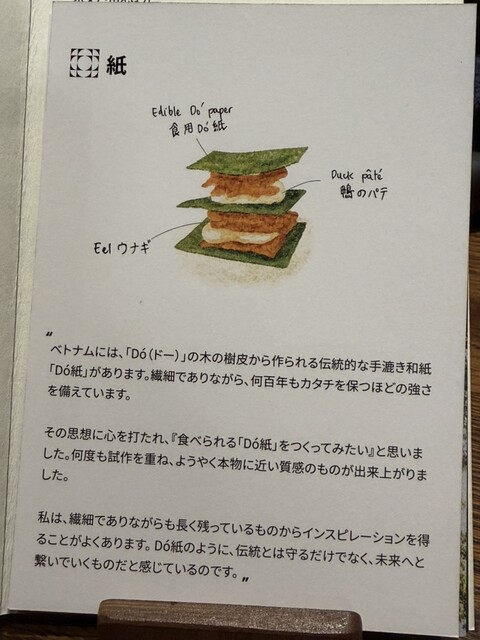 紙
Edible Dó paper
食用Dó紙
Duck pâté
鴨のパテ
Eel ウナギ
〝
ベトナムには、「Dó（ドー）」の木の樹皮から作られる伝統的な手漉き和紙
「Dó紙」があります。繊細でありながら、何百年もカタチを保つほどの強さ
を備えています。
その思想に心を打たれ、『食べられる「Dó紙」をつくってみたい』と思いま
した。何度も試作を重ね、ようやく本物に近い質感のものが出来上がりま
した。
私は、繊細でありながらも長く残っているものからインスピレーションを得
ることがよくあります。Dó紙のように、伝統とは守るだけでなく、未来へと
繋いでいくものだと感じているのです。〟